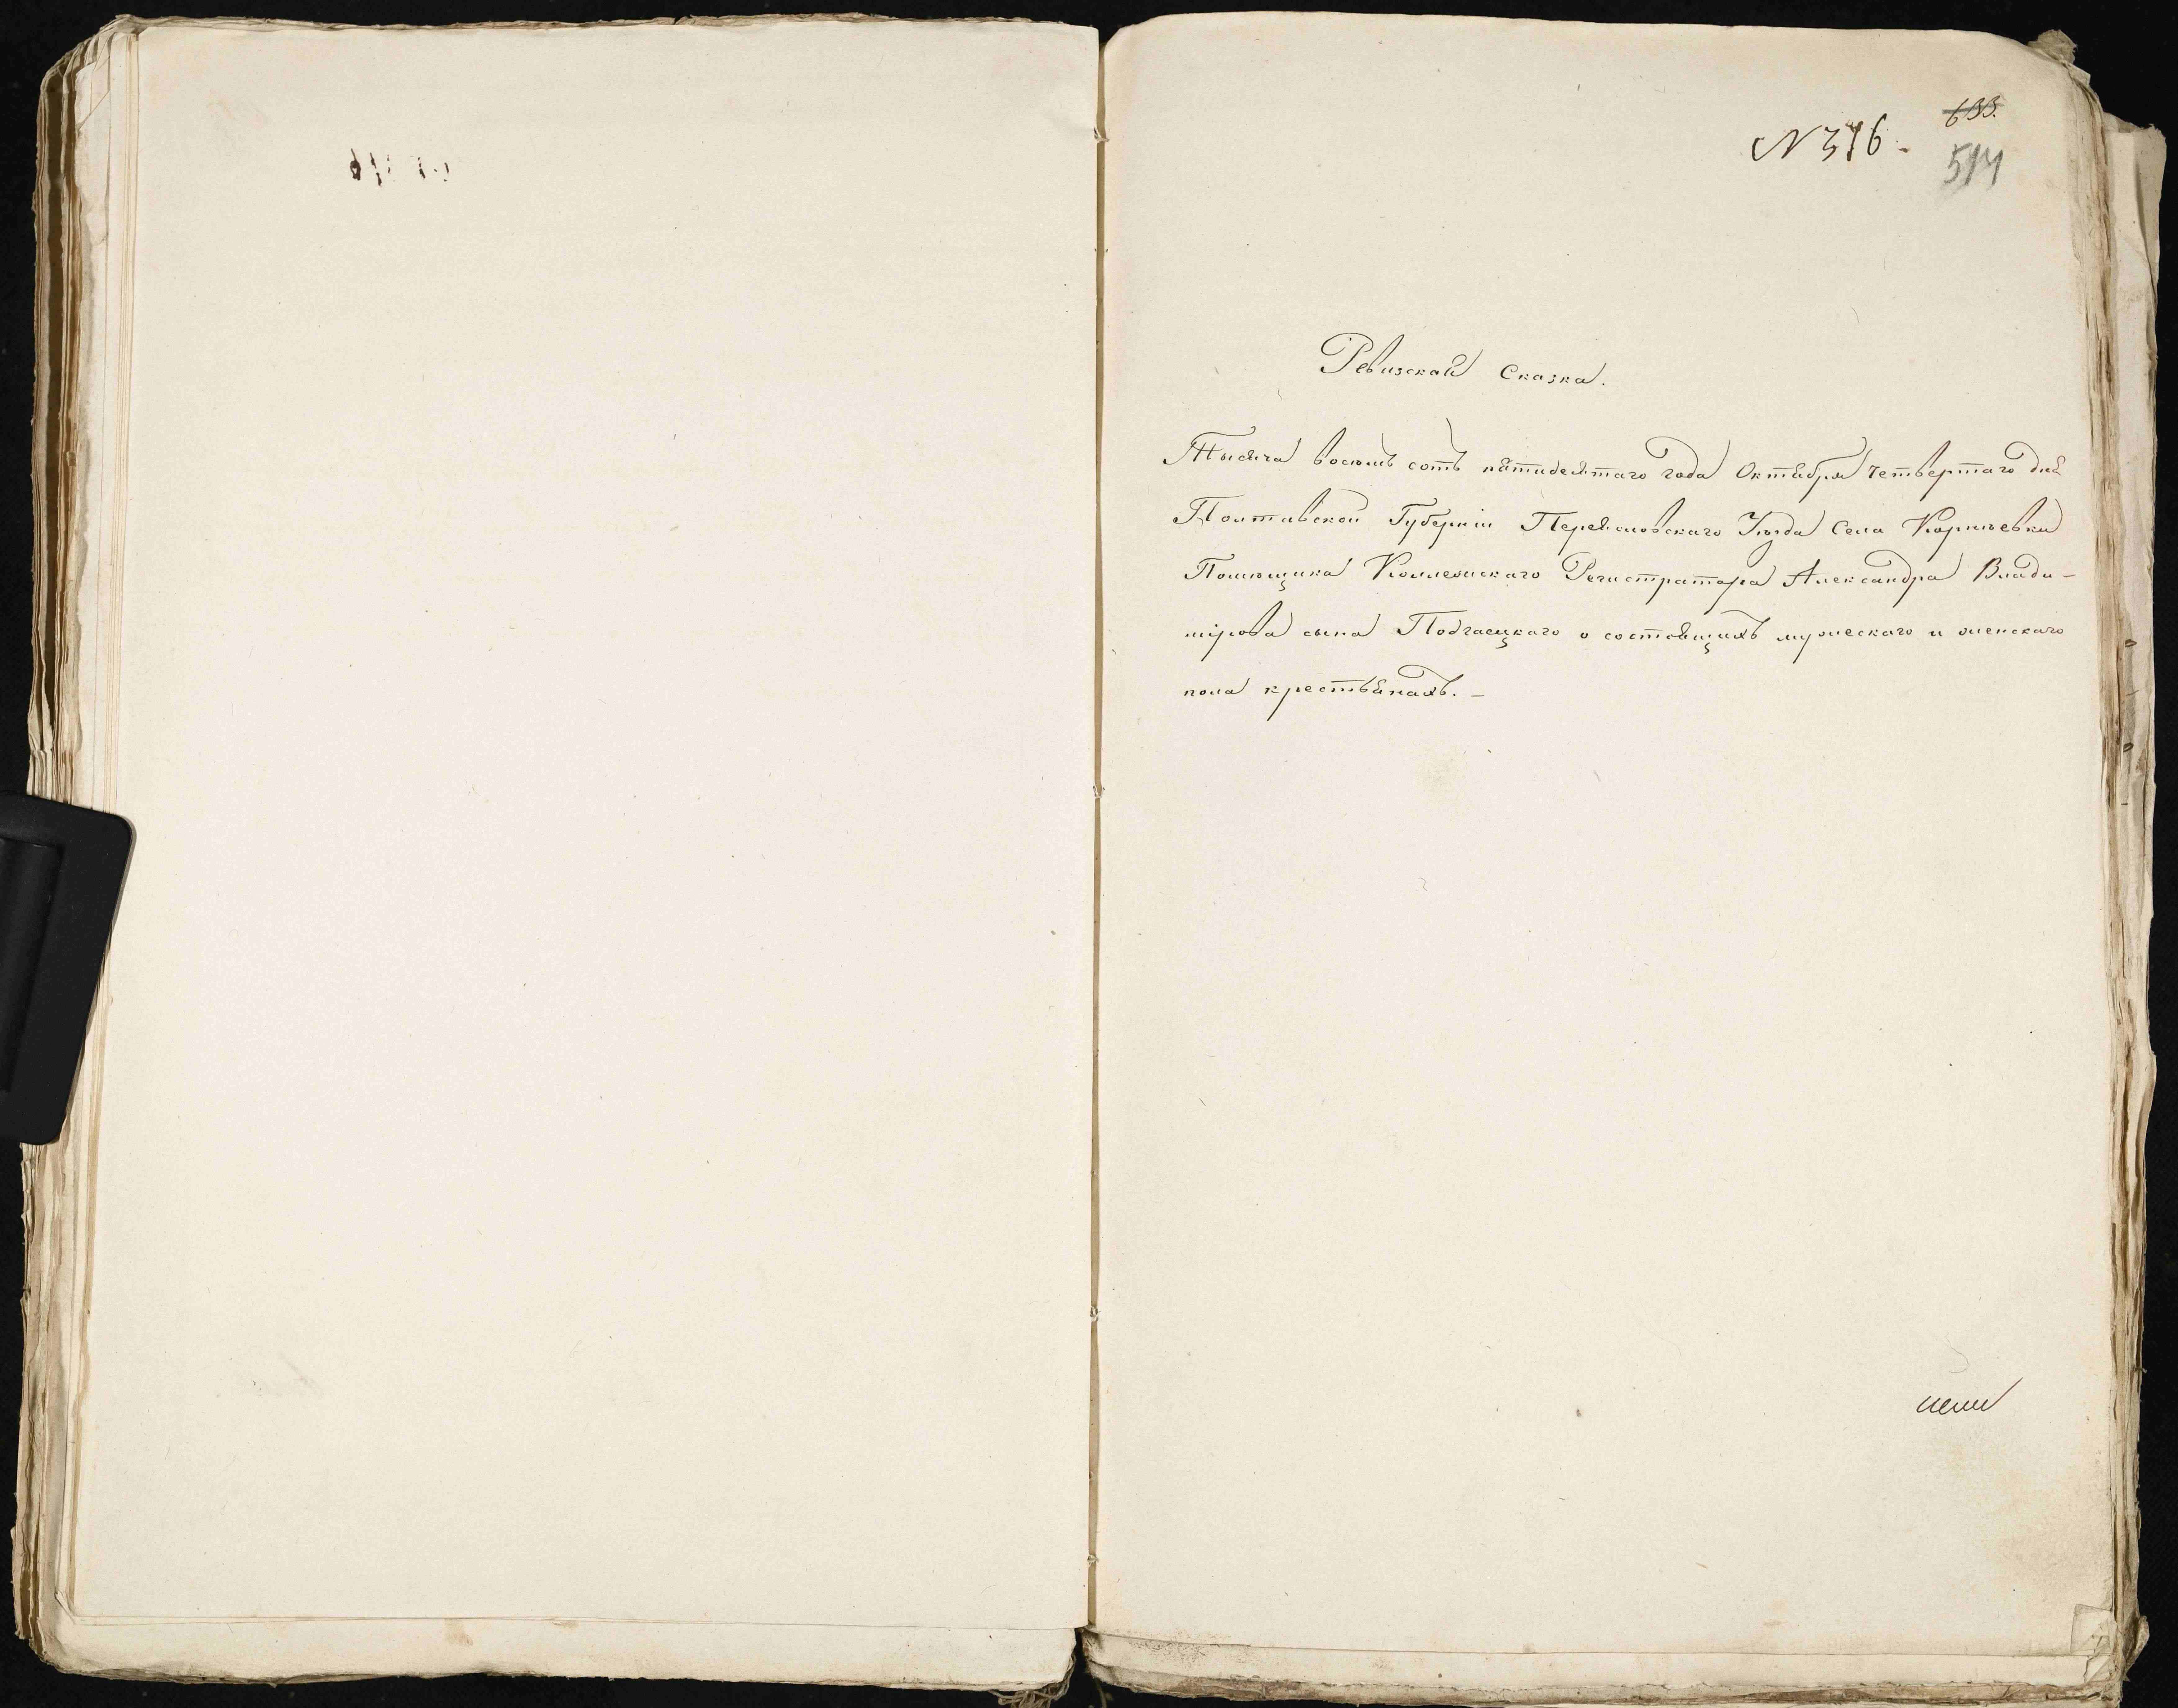 633.
N 316.
514
Ревизская Сказка.
Тысяча восемь сотъ пятидесятаго года Октября четвертаго дня
Полтавской Губерніи Переяславскаго Уѣзда Села Корнѣевки
Помѣщика Коллежскаго Регистратора Александра Влади-
мірова сына Подгаецкаго о состоящихъ мужескаго и женскаго
пола крестьянахъ. -